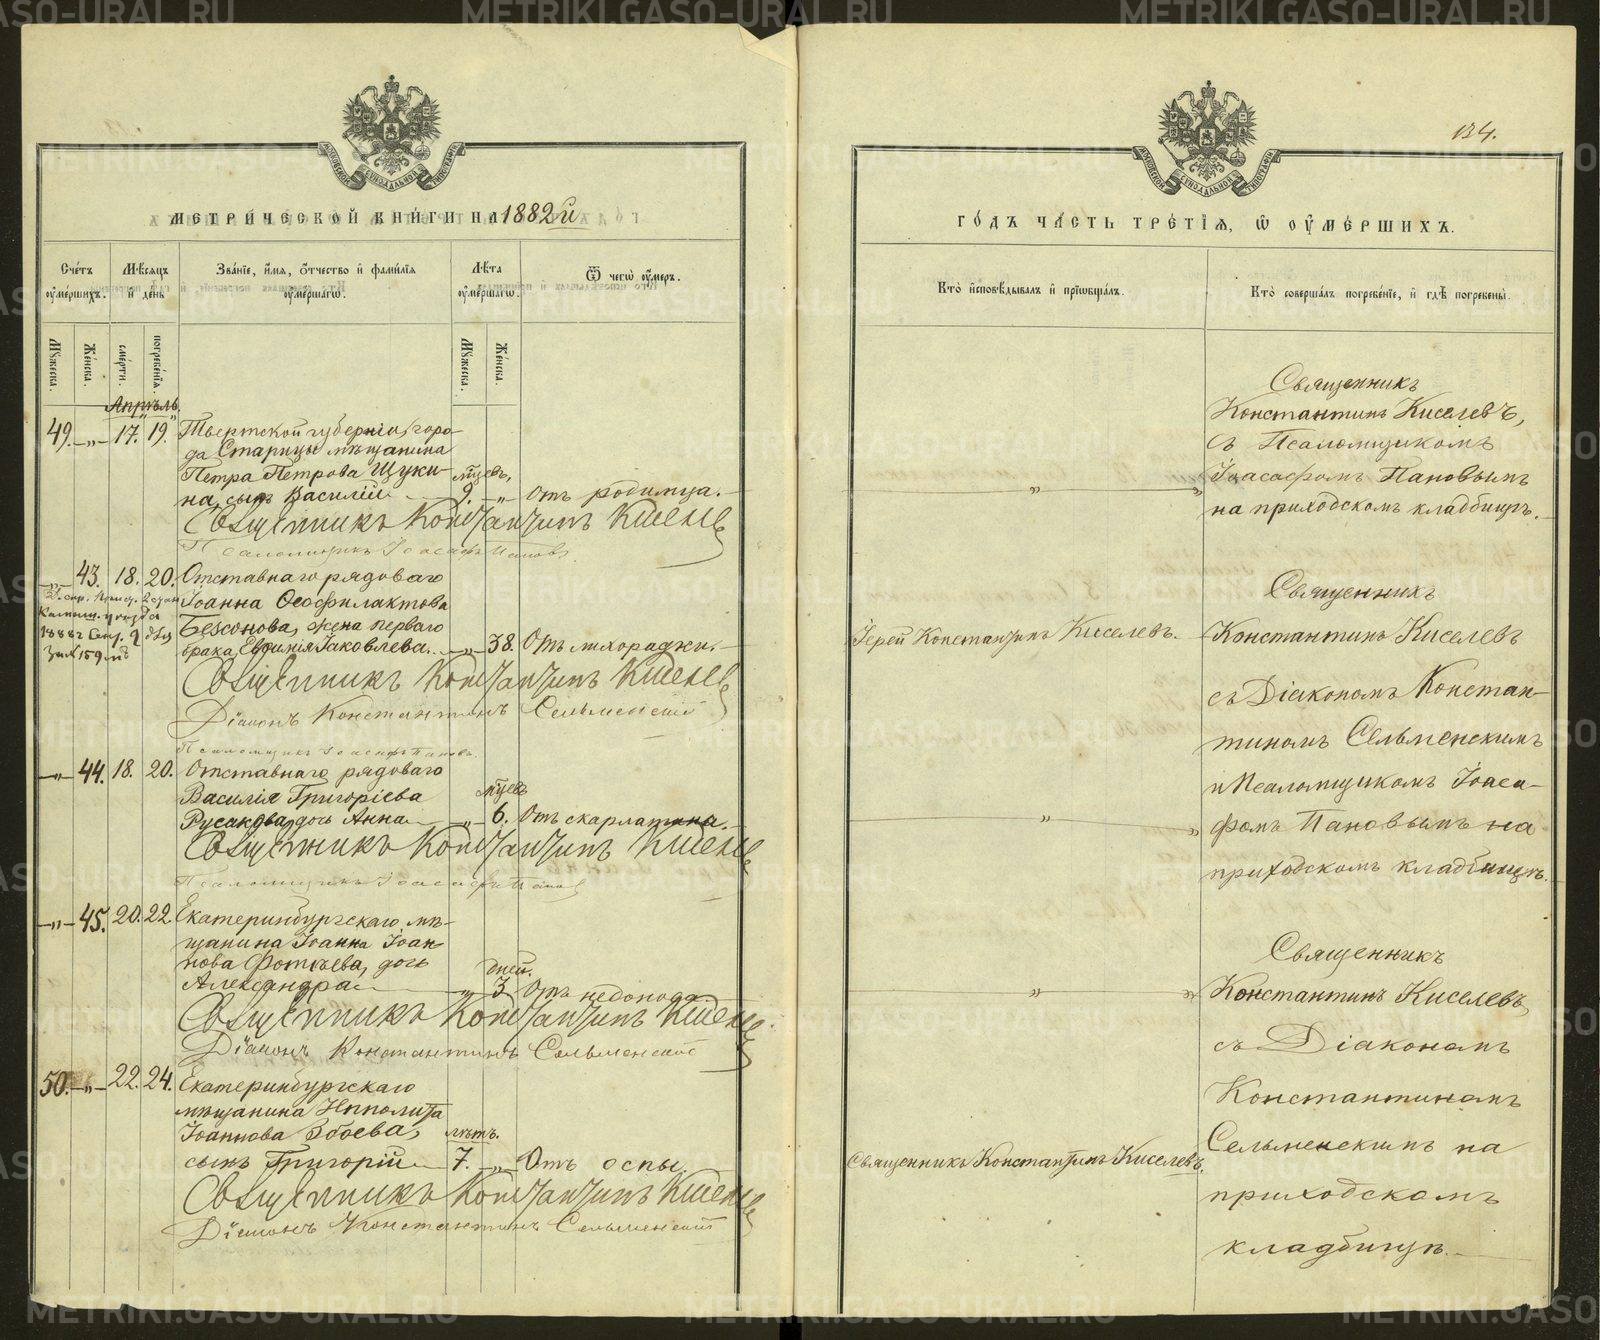 METRIKI.GASO-URAL.RU
134.
МОСКОВСКОЙ СѴНОДАЛЬНОЙ ТИПОГРАФІИ
МЕТРИ́ЧЕСКОЙ КНИ́ГИ НА 1882й
Сче́тъ ᲂу҆ме́ршихъ.
Мѣ́сяцъ и҆ день
Зва́нїе, и҆́мя, ѻ҆́тчество и҆ фами́лїя ᲂу҆ме́ршагѡ.
Лѣ́та ᲂу҆ме́ршагѡ.
Ѿ чегѡ̀ ᲂу҆́меръ.
Мꙋ́жеска.
Же́нска.
сме́рти.
погребе́нїя.
Мꙋ́жеска.
Же́нска.
Апрѣль.
49. — „ — 17. 19. Тверской губерніи, горо-
да Старицы мѣщанина
Петра Петрова Щуки- мѣцевъ,
на, сынъ Василій 9. — „ отъ родимца.
Священникъ Константинъ Киселевъ
Псаломщикъ Іоасафъ Пановъ
— „ — 43. 18. 20. Отставнаго рядоваго
Іоанна Ѳеофилактова
Безсонова, жена перваго
брака, Евѳимія Іаковлева. — „ — 38. Отъ лихорадки.
Священникъ Константинъ Киселевъ
Діаконъ Константинъ Сельменскій
Псаломщикъ Іоасафъ Пановъ
— „ — 44. 18. 20. Отставнаго рядоваго
Василія Григоріева мѣцевъ
Русакова, дочь Анна — „ — 6. Отъ скарлатины.
Священникъ Константинъ Киселевъ
Псаломщикъ Іоасафъ Пановъ
— „ — 45. 20. 22. Екатеринбургскаго мѣ-
щанина Іоанна Іоан-
нова Фотѣева, дочь дней.
Александра — „ 3. Отъ недоноса.
Священникъ Константинъ Киселевъ
Діаконъ Константинъ Сельменскій
50. — „ — 22. 24. Екатеринбургскаго
мѣщанина Ипполита
Іоаннова лѣтъ.
сынъ Григорій 7. — „ — Отъ оспы.
Священникъ Константинъ Киселевъ
Діаконъ Константинъ Сельменскій
МОСКОВСКОЙ СѴНОДАЛЬНОЙ ТИПОГРАФІИ
ГО́ДЪ ЧА́СТЬ ТРЕ́ТЇЯ, Ѡ҆ ОУ҆МЕ́РШИХЪ.
Кто̀ и҆сповѣ́дывалъ и҆ прїѡбща́лъ.
Кто̀ соверша́лъ погребе́нїе, и҆ гдѣ̀ погребены̀.
Священникъ
Константинъ Киселевъ,
съ Псаломщикомъ
Іоасафомъ Пановымъ
на приходскомъ кладбищѣ.
Священникъ
Іерей Константинъ Киселевъ. Константинъ Киселевъ
съ Діакономъ Констан-
тиномъ Сельменскимъ
и Псаломщикомъ Іоаса-
фомъ Пановымъ на
приходскомъ кладбищѣ.
Священникъ
Константинъ Киселевъ,
съ Діакономъ
Константиномъ
Сельменскимъ на
Священникъ Константинъ Киселевъ.
приходскомъ
кладбищѣ.